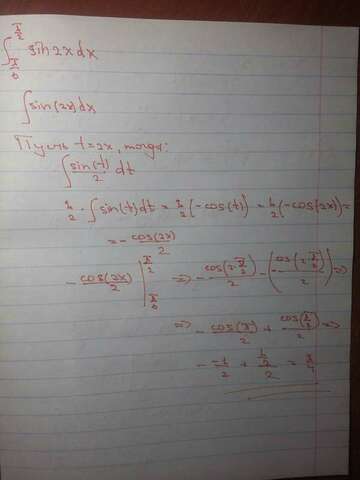 ∫_{π/6}^{π/2} sin 2x dx
∫ sin(2x) dx
Пусть t=2x, тогда:
∫ sin(t)/2 dt
1/2 · ∫ sin(t) dt = 1/2 (-cos(t)) = 1/2 (-cos(2x)) =
= - cos(2x)/2
- cos(2x)/2 |_{π/6}^{π/2} => - cos(2·π/2)/2 - (- cos(2·π/6)/2) =>
=> - cos(π)/2 + cos(π/3)/2 =>
- -1/2 + 1/2/2 = 3/4